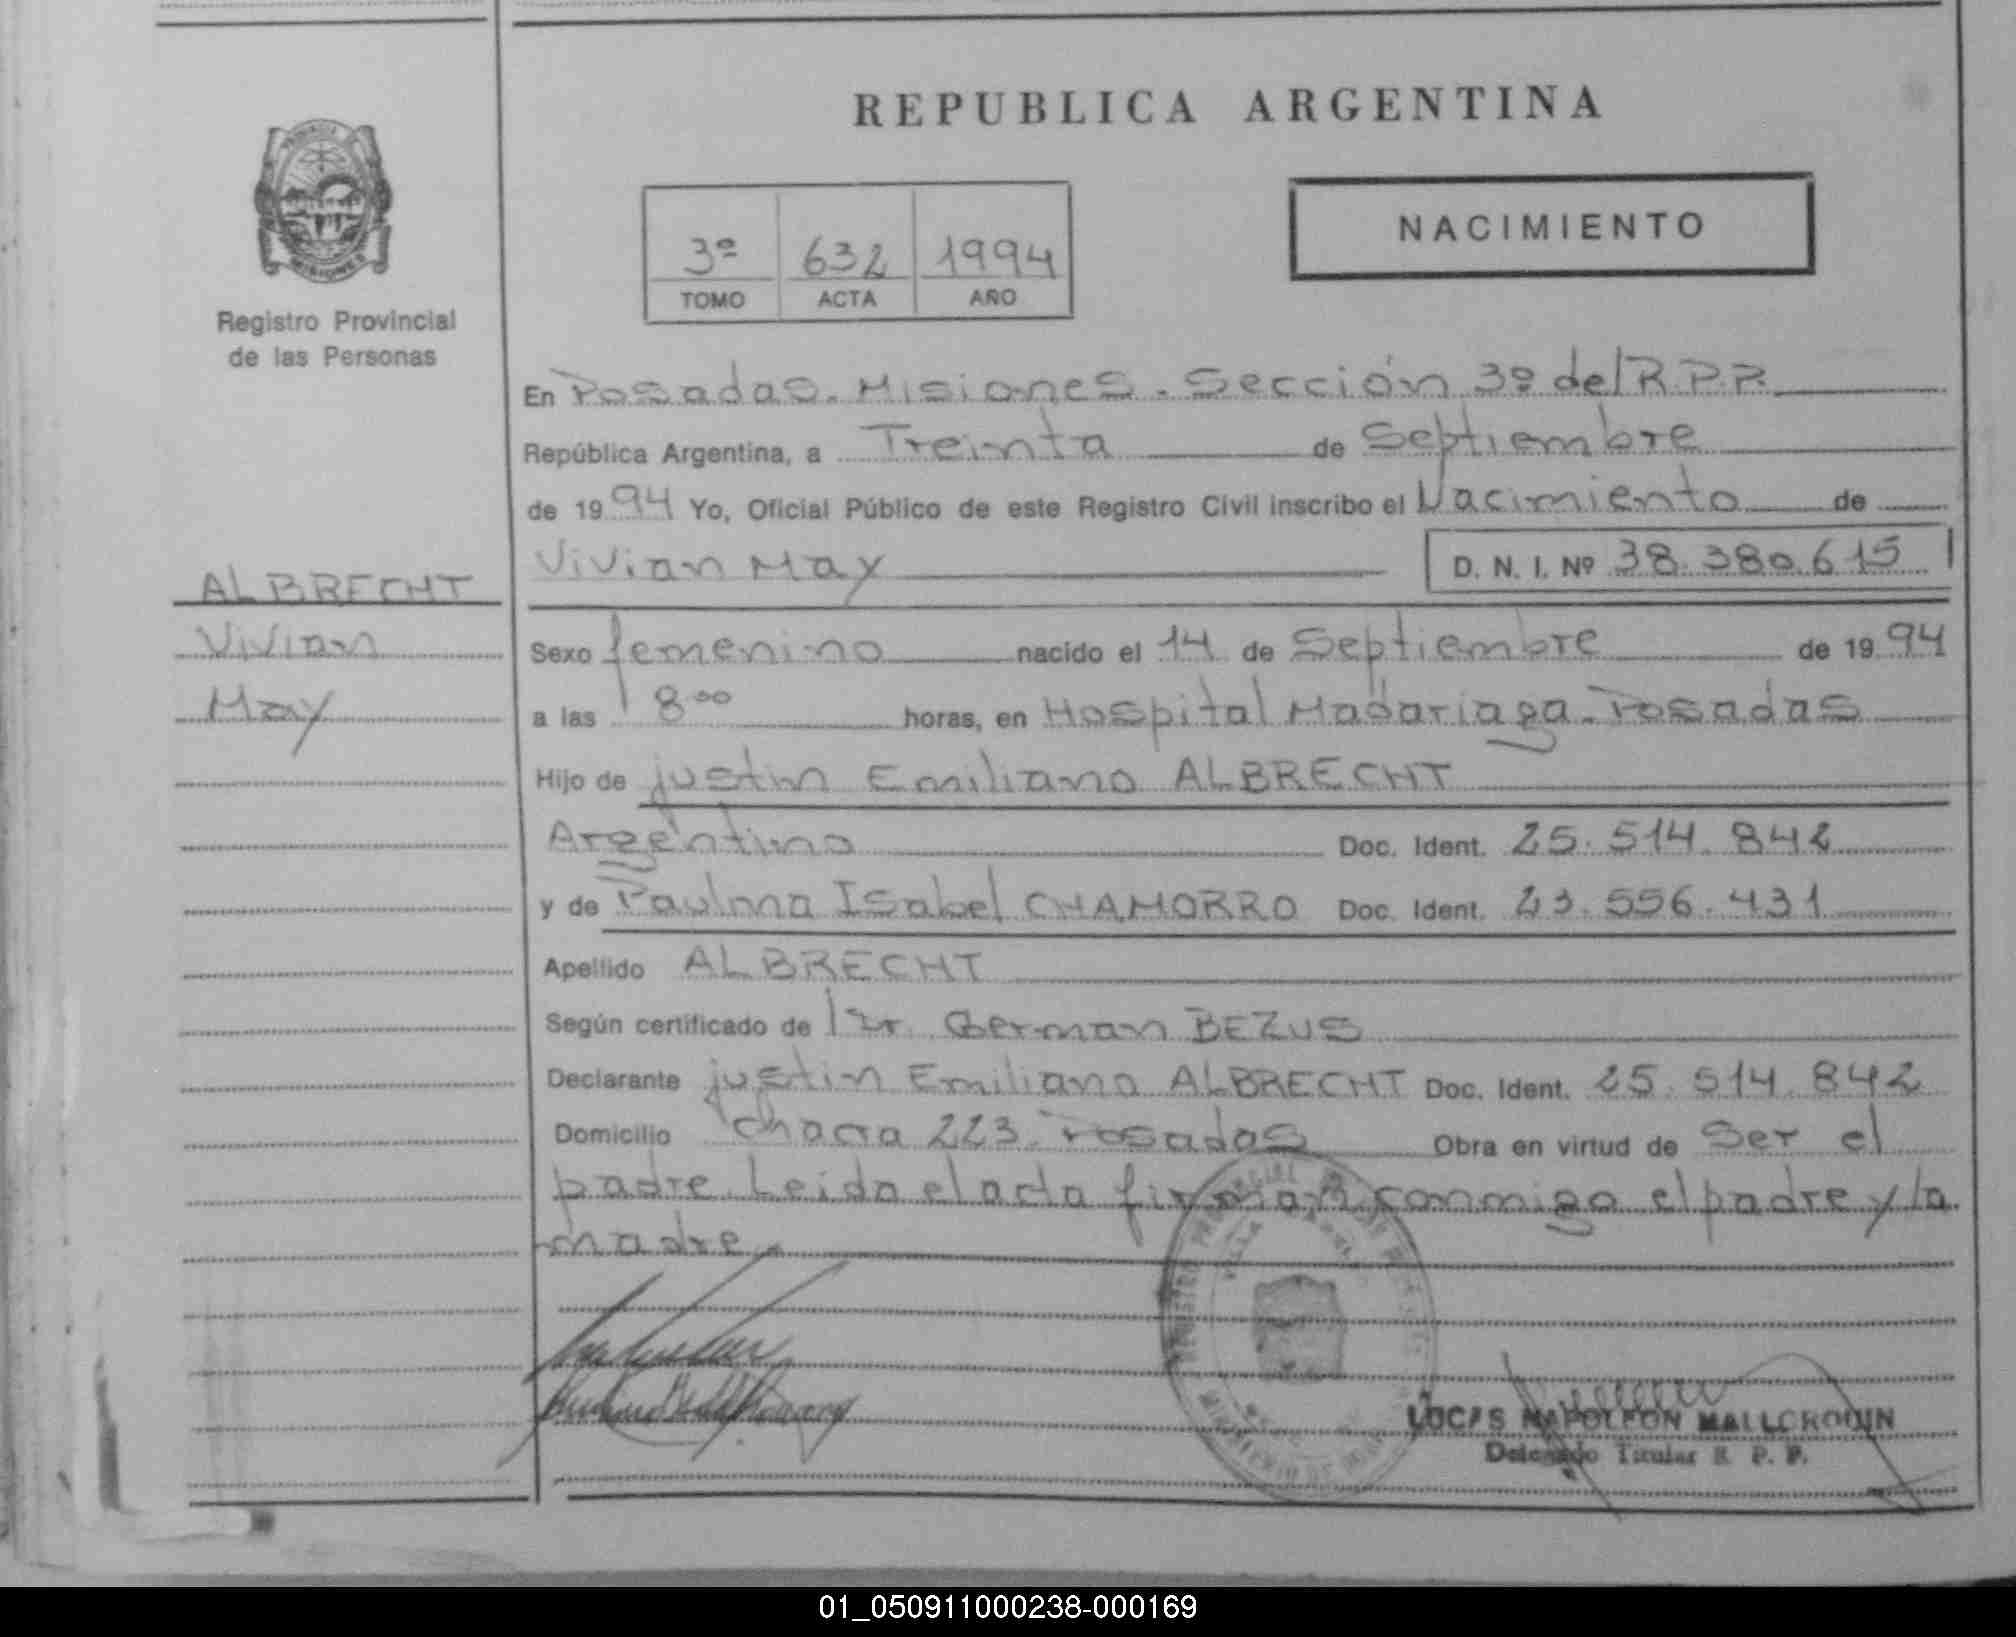 REPUBLICA ARGENTINA
MISIONES
Registro Provincial
de las Personas
NACIMIENTO
3º 632 1994
TOMO ACTA AÑO
En Posadas. Misiones. Sección 3º del R.P.P.
República Argentina, a Treinta de Septiembre
de 1994 Yo, Oficial Público de este Registro Civil inscribo el Nacimiento de
Vivian May D. N. I. Nº 38.380.615
ALBRECHT
Vivian
May
Sexo femenino nacido el 14 de Septiembre de 1994
a las 8⁰⁰ horas, en Hospital Madariaga. Posadas
Hijo de justin Emiliano ALBRECHT
Argentino Doc. Ident. 25.514.842
y de Paulina Isabel CHAMORRO Doc. Ident. 23.556.431
Apellido ALBRECHT
Según certificado de Dr. German BEZUS
Declarante justin Emiliano ALBRECHT Doc. Ident. 25.514.842
Domicilio chacra 223. Posadas Obra en virtud de Ser el
padre. Leida el acta firman conmigo el padre y la
madre.
LUCAS NAPOLEON MALLORQUIN
Delegado Titular R. P. P.
01_050911000238-000169